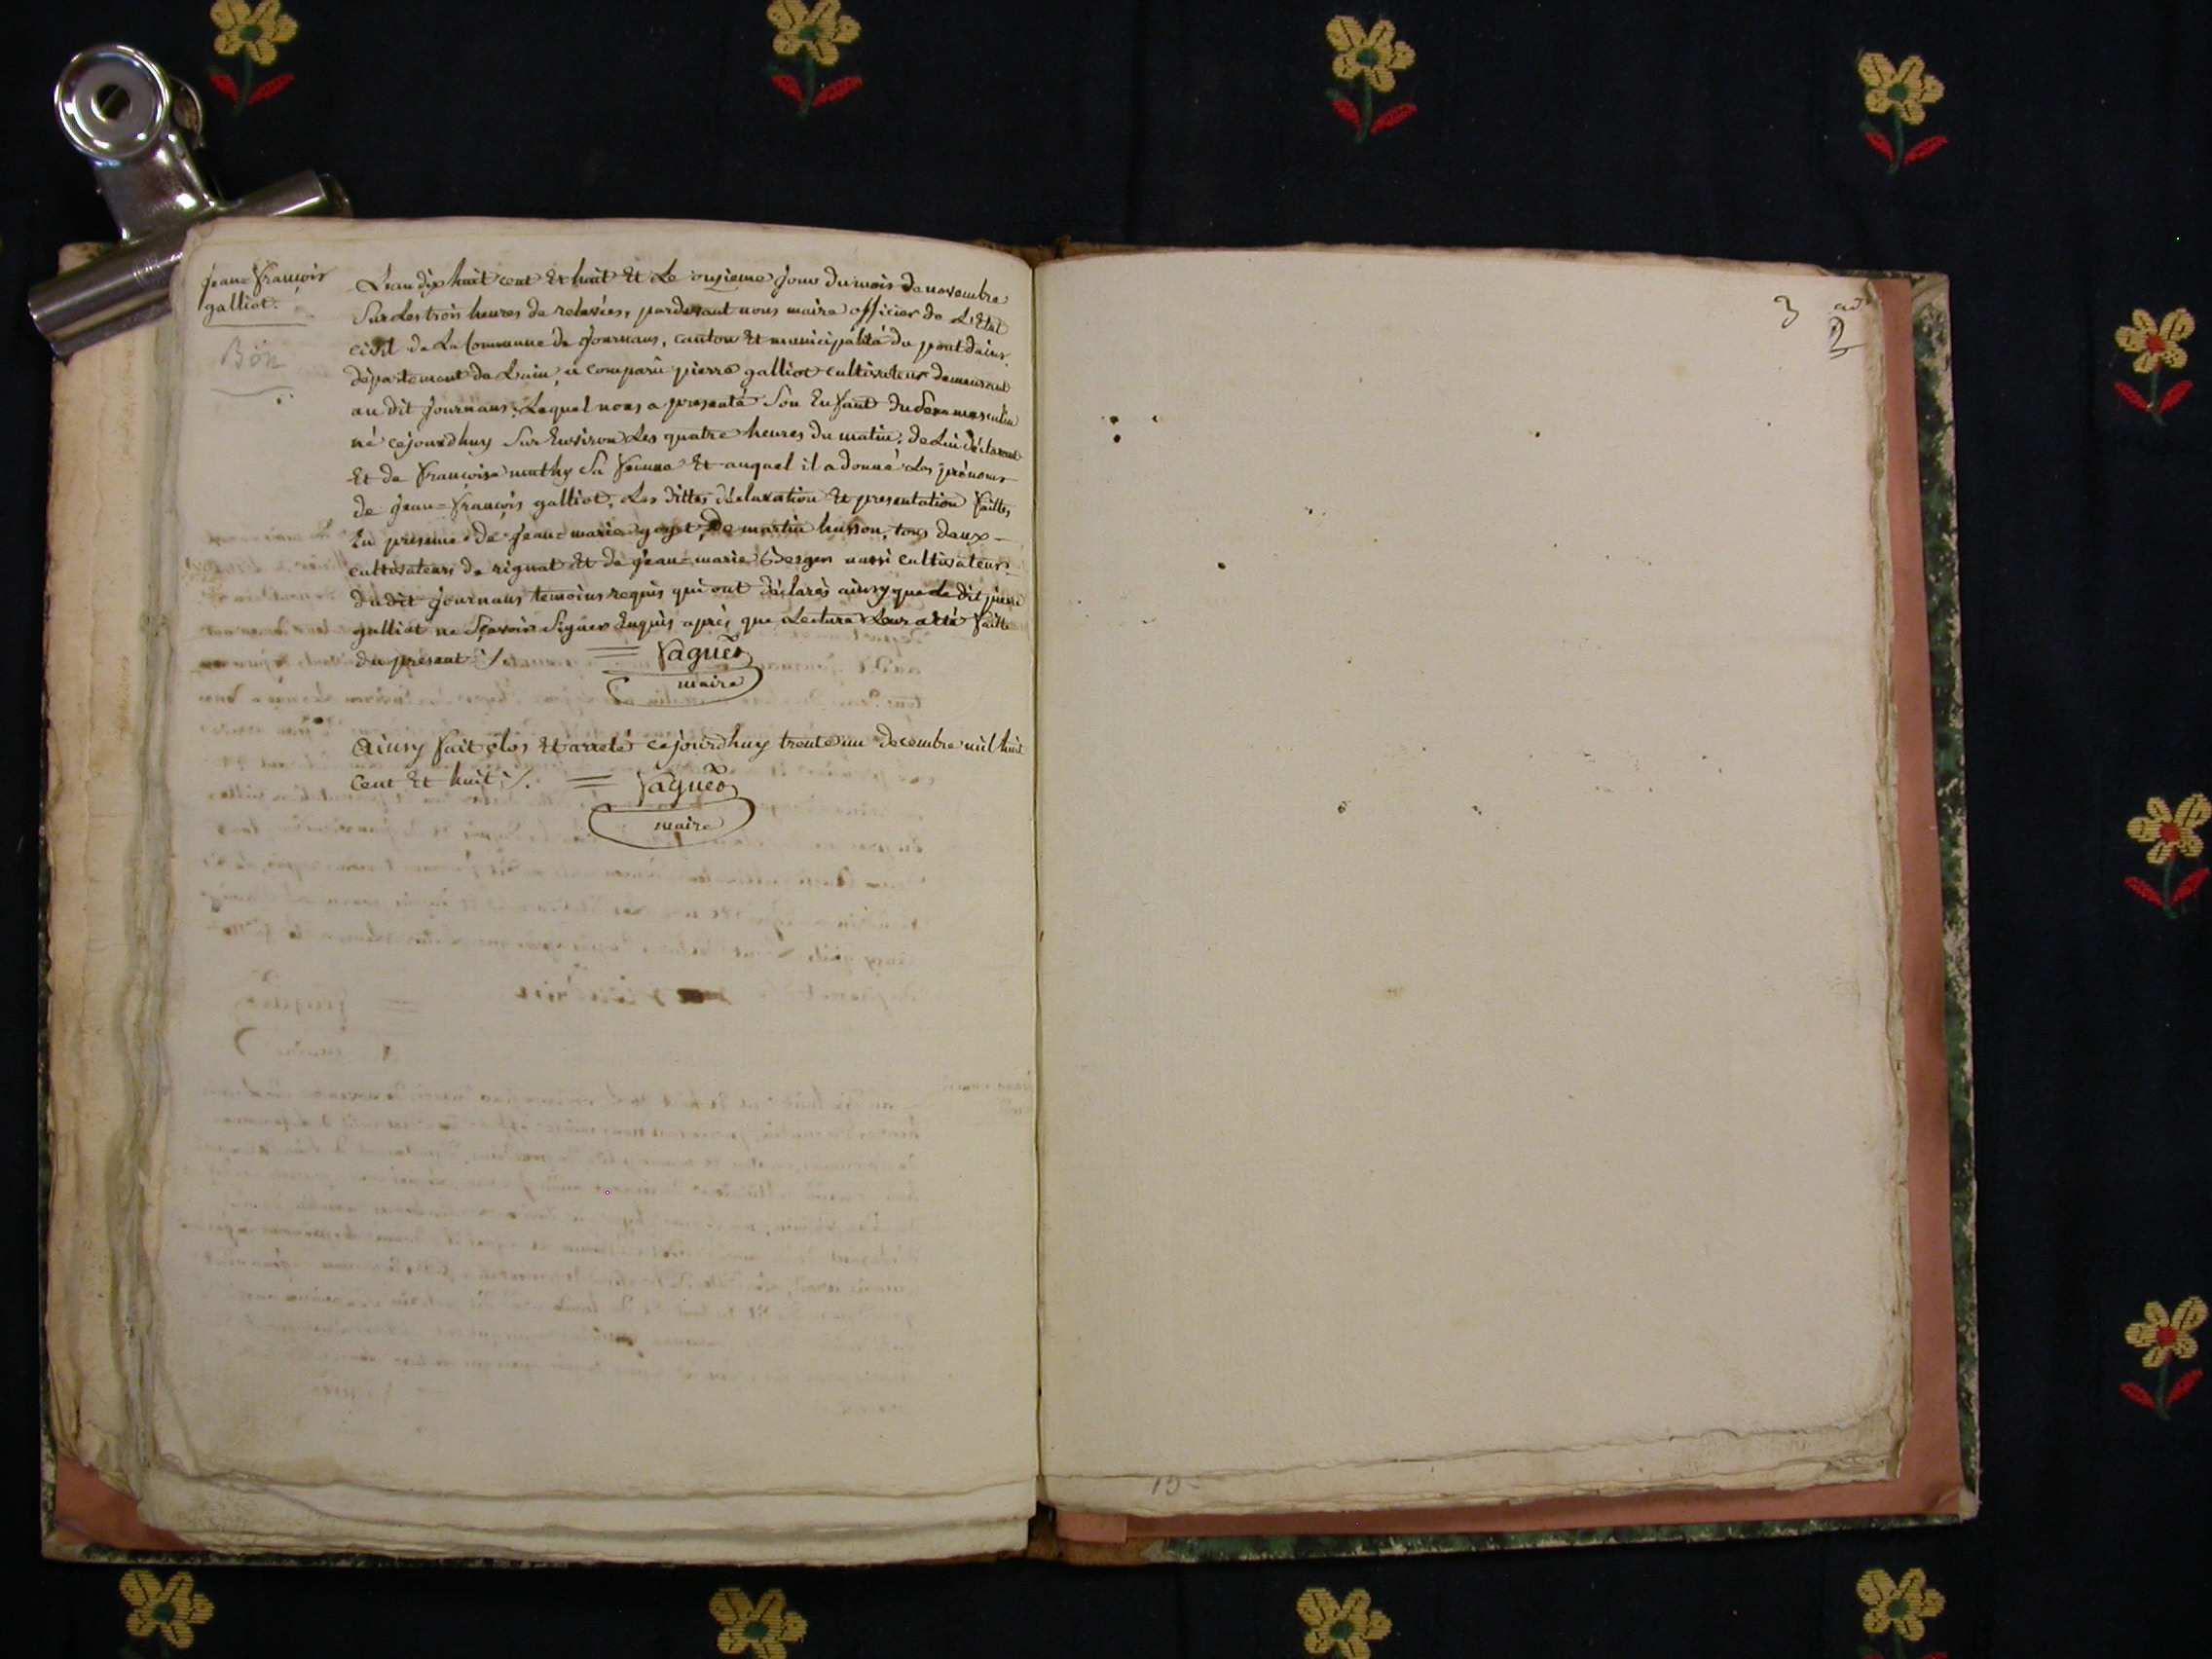 Jean=françois
galliot.
Bon
L'an dix huit cent Et huit Et Le onzieme jour du mois de novembre
Sur Les trois heures de relevées, pardevant nous maire officier de L'Etat
civil de La Commune de Journans, canton Et municipalité du pont dains
département de Lain, a comparû pierre galliot cultivateur demeurant
au dit Journans, Lequel nous a presenté Son Enfant du Sexe masculin
né cejourdhuy Sur Environ Les quatre heures du matin, de Lui déclarant
Et de françoise mathy Sa femme Et auquel il a donné Les prénoms
de jean=françois galliot, Les dittes déclaration Et presentation faittes
En présence de jean=marie goyet, De martin husson, tous deux
cultivateurs de rignat Et de jean=marie aussi cultivateur
du dit Journans temoins requis qui ont déclarés ainsy que le dit pierre
galliot ne Sçavoir Signer Enquis après que Lecture Leur a été faitte
du présent ./.
faguer
maire
Ainsy fait clos Et arreté cejourdhuy trente un decembre mil huit
cent Et huit ./.
faguer
maire
3
2
15